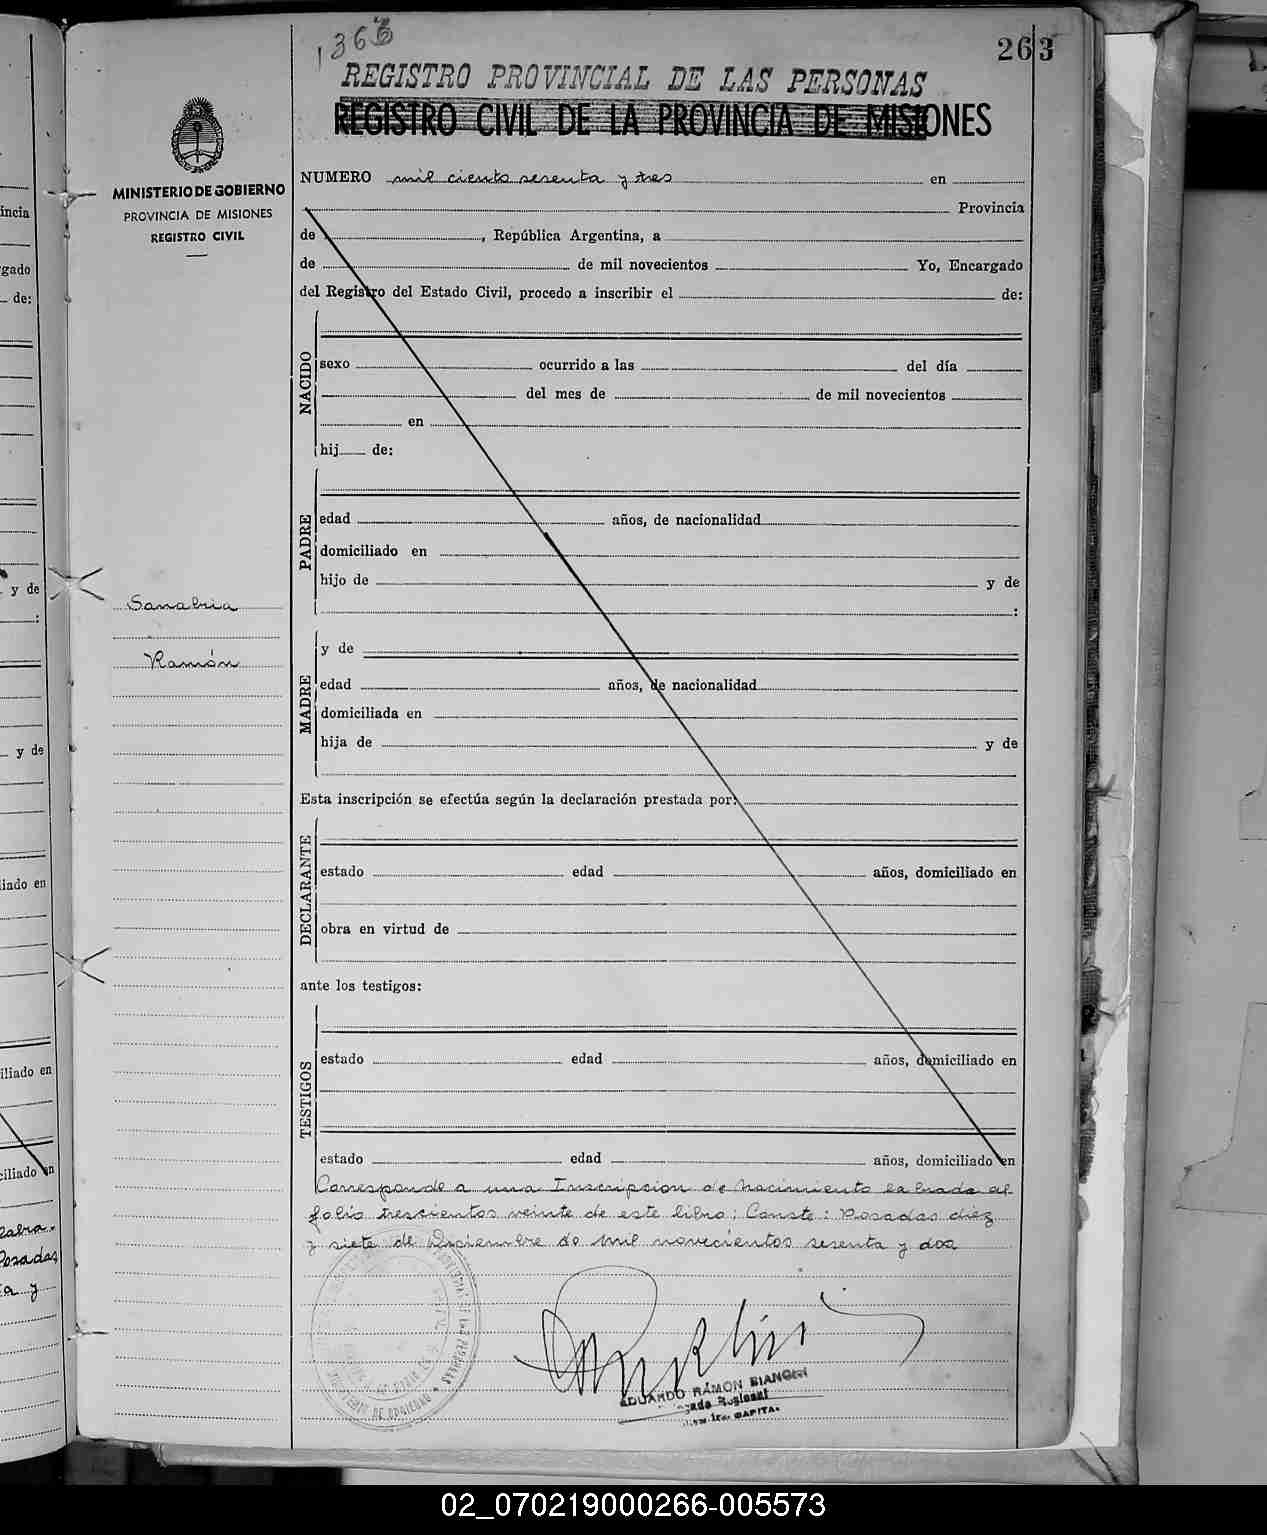 1363
263
REGISTRO PROVINCIAL DE LAS PERSONAS
REGISTRO CIVIL DE LA PROVINCIA DE MISIONES
MINISTERIO DE GOBIERNO
PROVINCIA DE MISIONES
REGISTRO CIVIL
NUMERO mil ciento sesenta y tres en
Provincia
de , República Argentina, a
de de mil novecientos Yo, Encargado
del Registro del Estado Civil, procedo a inscribir el de:
NACIDO
sexo ocurrido a las del día
del mes de de mil novecientos
en
hij de:
PADRE
edad años, de nacionalidad
domiciliado en
hijo de y de
:
Sanabria
Ramón
MADRE
y de
edad años, de nacionalidad
domiciliada en
hija de y de
Esta inscripción se efectúa según la declaración prestada por:
DECLARANTE
estado edad años, domiciliado en
obra en virtud de
ante los testigos:
TESTIGOS
estado edad años, domiciliado en
estado edad años, domiciliado en
Corresponde a una Inscripcion de nacimiento labrada al
folio trescientos veinte de este libro: Conste: Posadas diez
y siete de Diciembre de mil novecientos sesenta y dos
EDUARDO RAMON BIANCHI
Regional
CAPITAL
incia
gado
de:
y de
:
y de
liado en
iliado en
ciliado en
Posadas
y
02_070219000266-005573